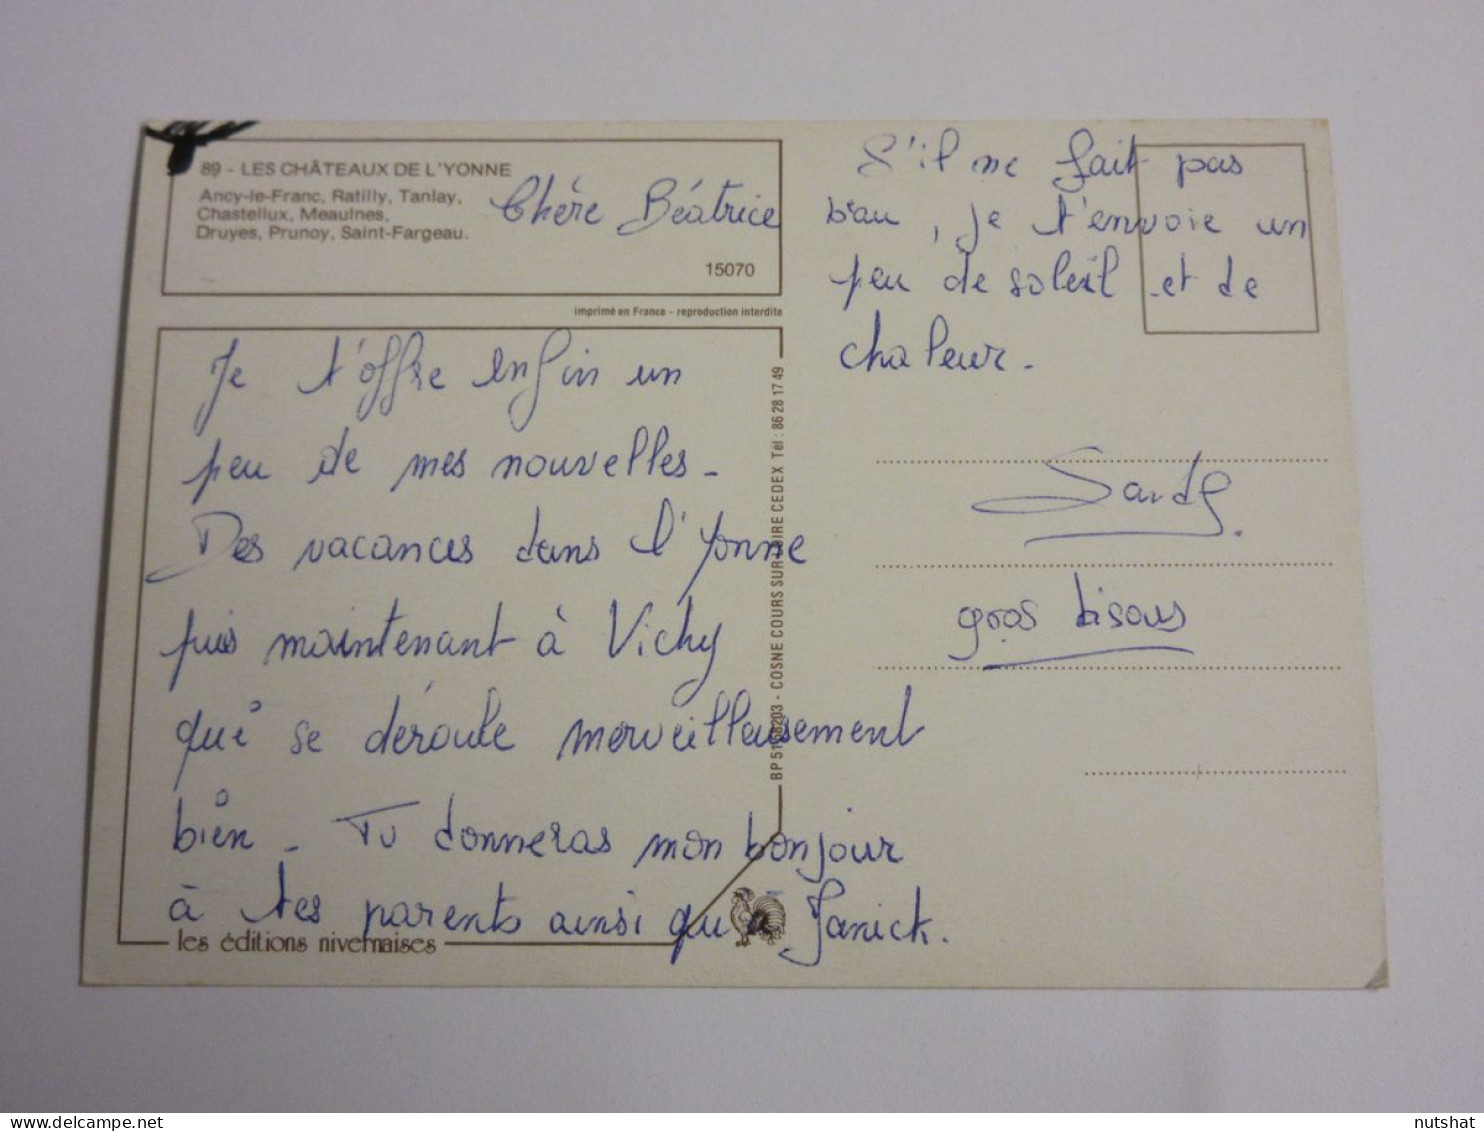 89 - LES CHÂTEAUX DE L'YONNE
Ancy-le-Franc, Ratilly, Tanlay,
Chastellux, Meaulnes,
Druyes, Prunoy, Saint-Fargeau.
15070
imprimé en France - reproduction interdite
Chère Béatrice
Je t'offre enfin un
peu de mes nouvelles.
Des vacances dans l'Yonne
puis maintenant à Vichy
qui se déroule merveilleusement
bien. Tu donneras mon bonjour
à tes parents ainsi qu'a Janick.
les éditions nivernaises
COSNE COURS SUR LOIRE CEDEX Tél : 86 28 17 49
S'il ne fait pas
beau, je t'envoie un
peu de soleil et de
chaleur.
gros bisous
nutshat